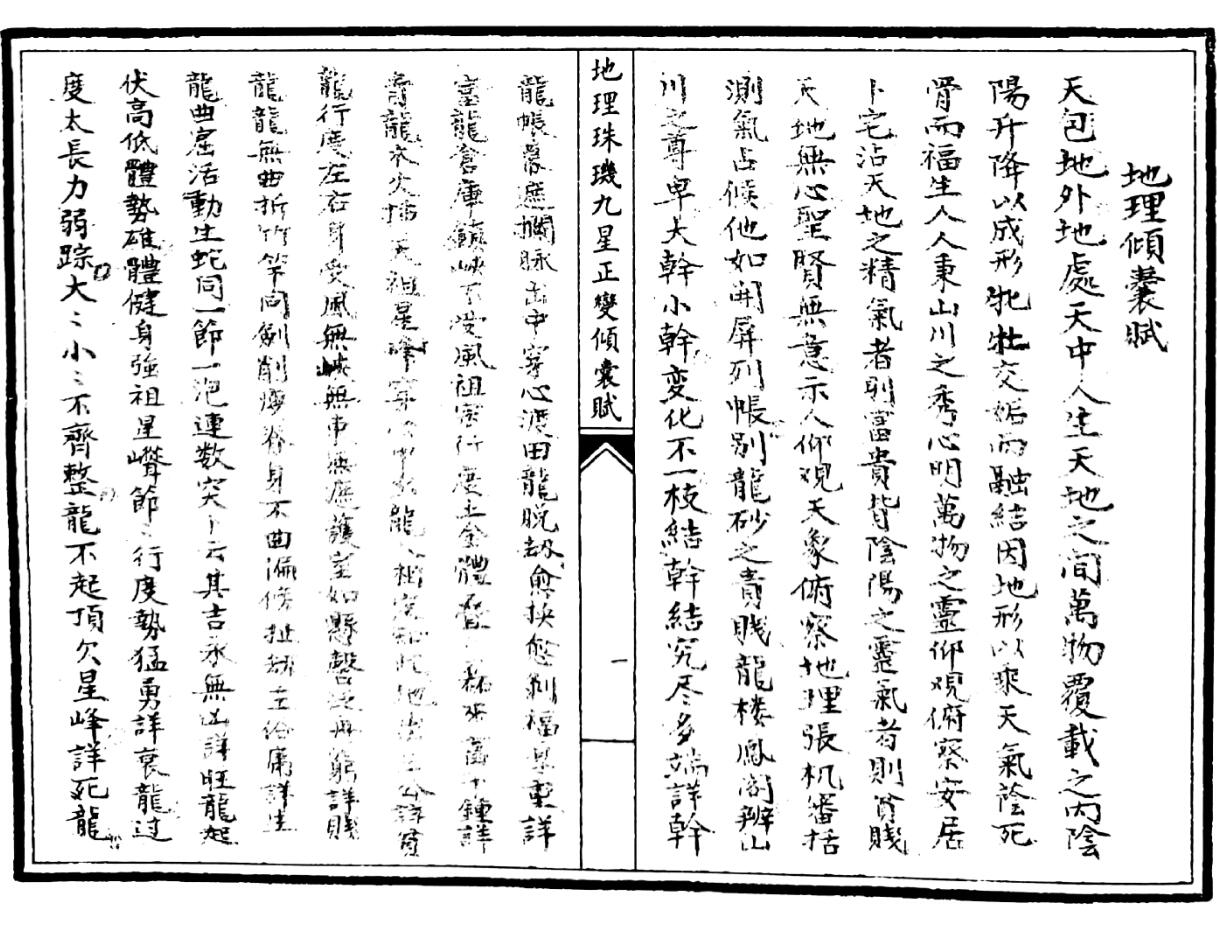 地理傾囊賦
天包地外地處天中人生天地之间萬物覆載之内陰
陽升降以成形牝牡交媾而融結因地形以乘天氣蔭死
骨而福生人人秉山川之秀心明萬物之靈仰观俯察安居
卜宅沾天地之精氣者則富貴背陰陽之靈氣者則貧賤
天地無心聖賢無意示人仰观天象俯察地理張机審括
測氣占候他如開屏列帳别龍砂之貴賤龍楼鳳阁辨山
川之尊卑大幹小幹変化不一枝結幹結究尽多端詳幹
地理珠璣九星正變傾囊賦
一
龍帳幕遮攔脉出中穿心渡田龍脱刼愈换愈剝福是重詳
富龍倉庫鎮峽不受風祖宗行度土金體疊疊来富千鍾詳
貴龍木火插天祖星峰穿心中出龍
龍行度左右身受風無峡無串無應護室如懸磬定毋窮詳賤
龍龍無曲折竹竿同劍削瘦脊身不曲漏傍扯拽主伶庸詳生
龍曲屈活動生蛇同一節一泡連数突卜云其吉永無凶詳旺龍起
伏高低體勢雄體健身強祖星巑節〻行度勢猛勇詳衰龍过
度太長力弱踪大〻小〻不齊整龍不起頂欠星峰詳死龍